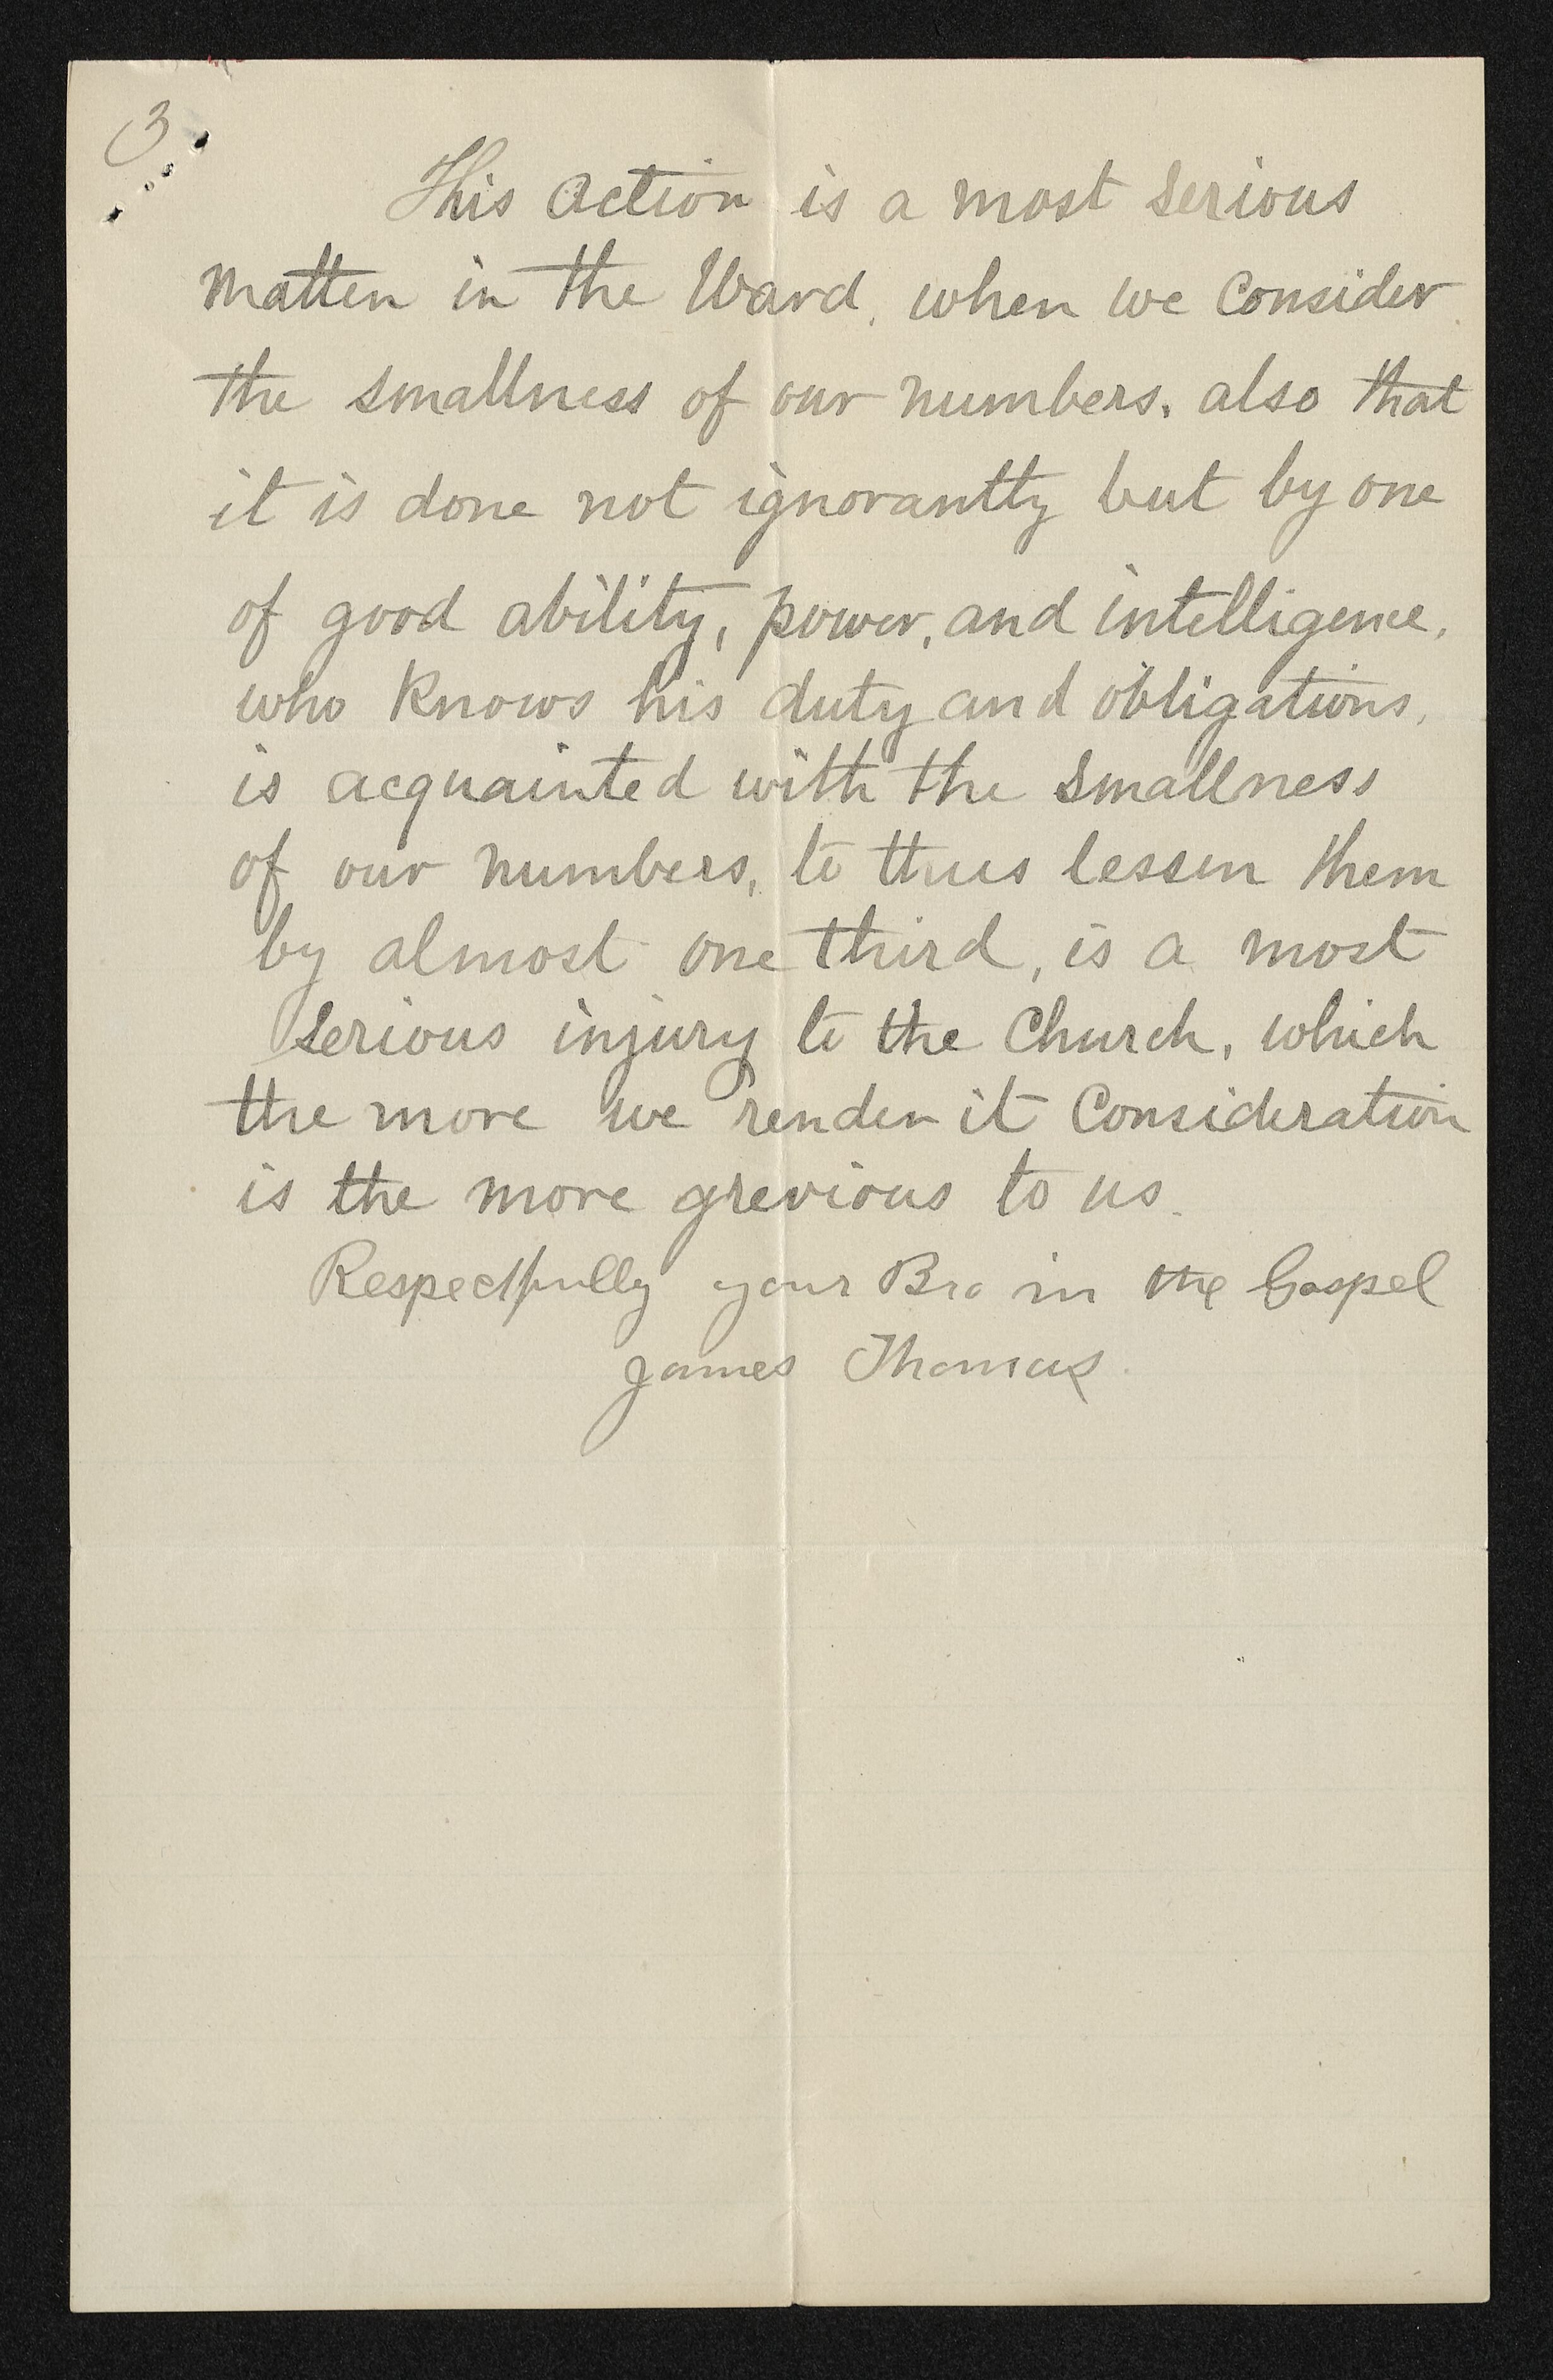 3
This action is a most serious
matter in the Ward, when we consider
the smallness of our numbers. also that
it is done not ignorantly but by one
of good ability, power, and intelligence,
who knows his duty and obligations,
is acquainted with the smallness
of our numbers, to thus lessen them
by almost one third, is a most
serious injury to the Church, which
the more we render it Consideration
is the more grevious to us.
Respectfully your Bro in the Gospel
James Thomas